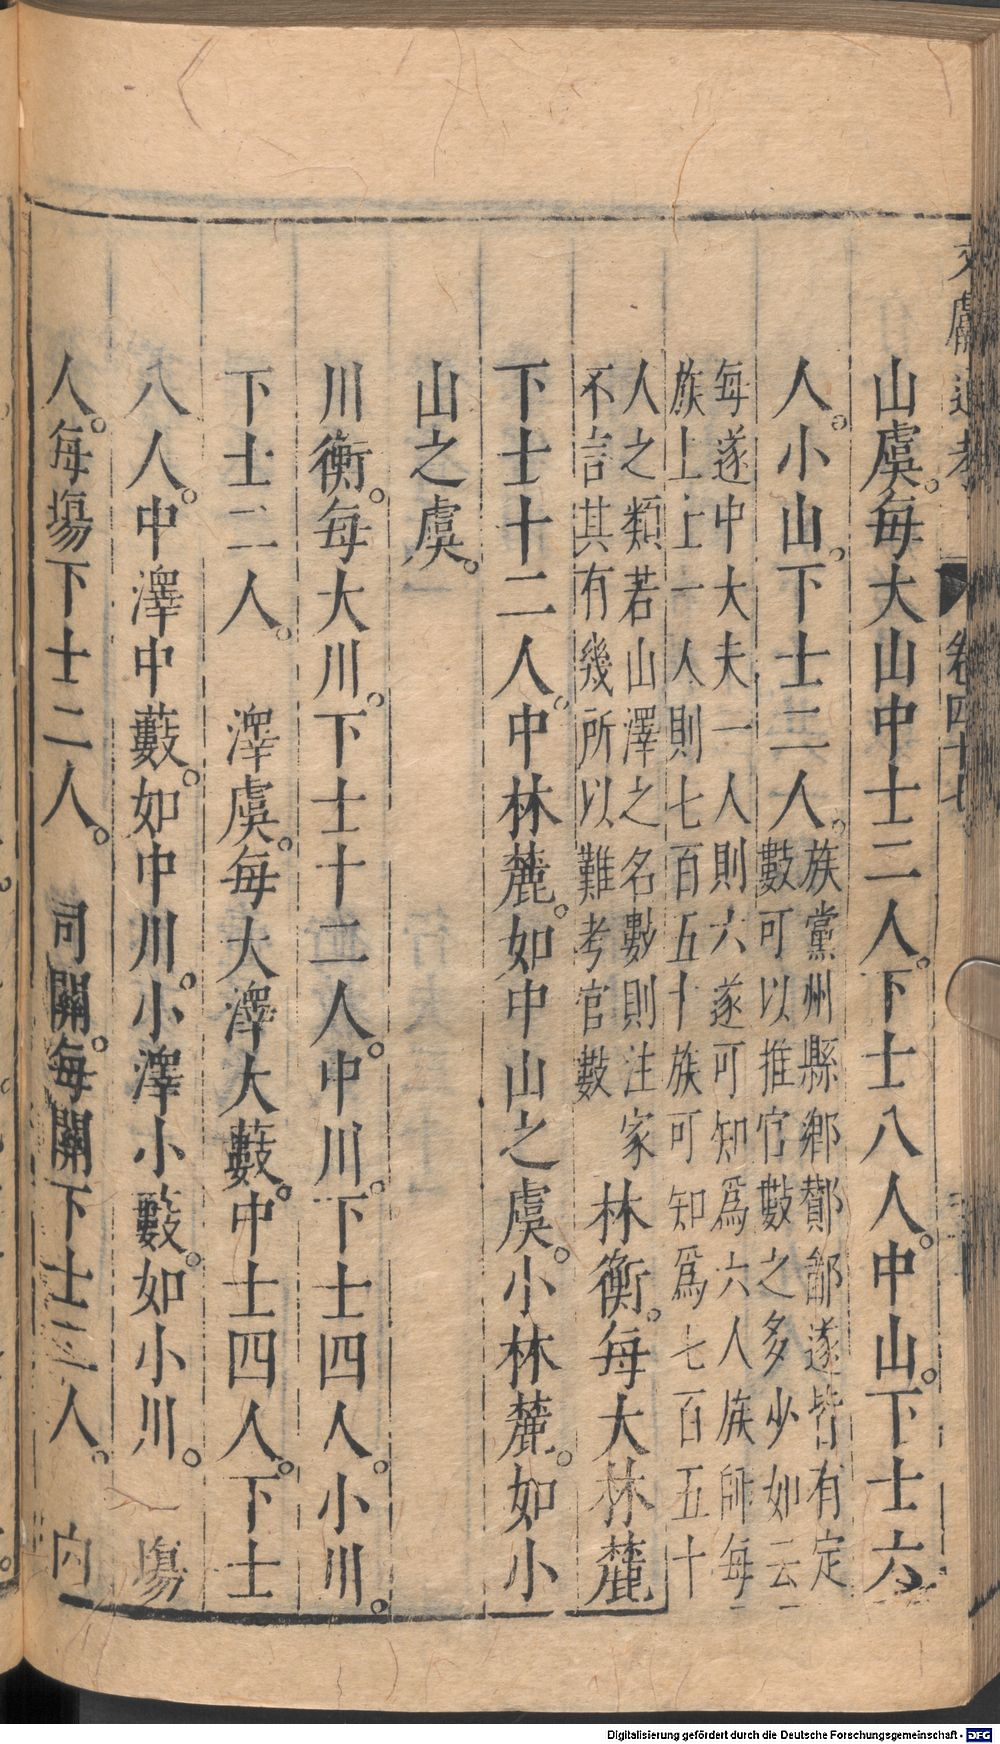 文獻通考 卷四十七
山虞。每大山中士二人。下士八人。中山。下士六
人。小山。下士二人。族黨州縣鄉酇鄙遂皆有定
數可以推官數之多少如云
每遂中大夫一人則六遂可知爲六人族師每
族上士一人則七百五十族可知爲七百五十
人之類若山澤之名數則注家
不言其有幾所以難考官數
林衡。每大林麓
下士十二人。中林麓。如中山之虞。小林麓。如小
山之虞。
川衡。每大川。下士十二人。中川。下士四人。小川。
下士二人。 澤虞。每大澤大藪。中士四人。下士
八人。中澤中藪。如中川。小澤小藪。如小川。 場
人。每場下士二人。 司關。每關下士二人。 內
Digitalisierung gefördert durch die Deutsche Forschungsgemeinschaft - DFG